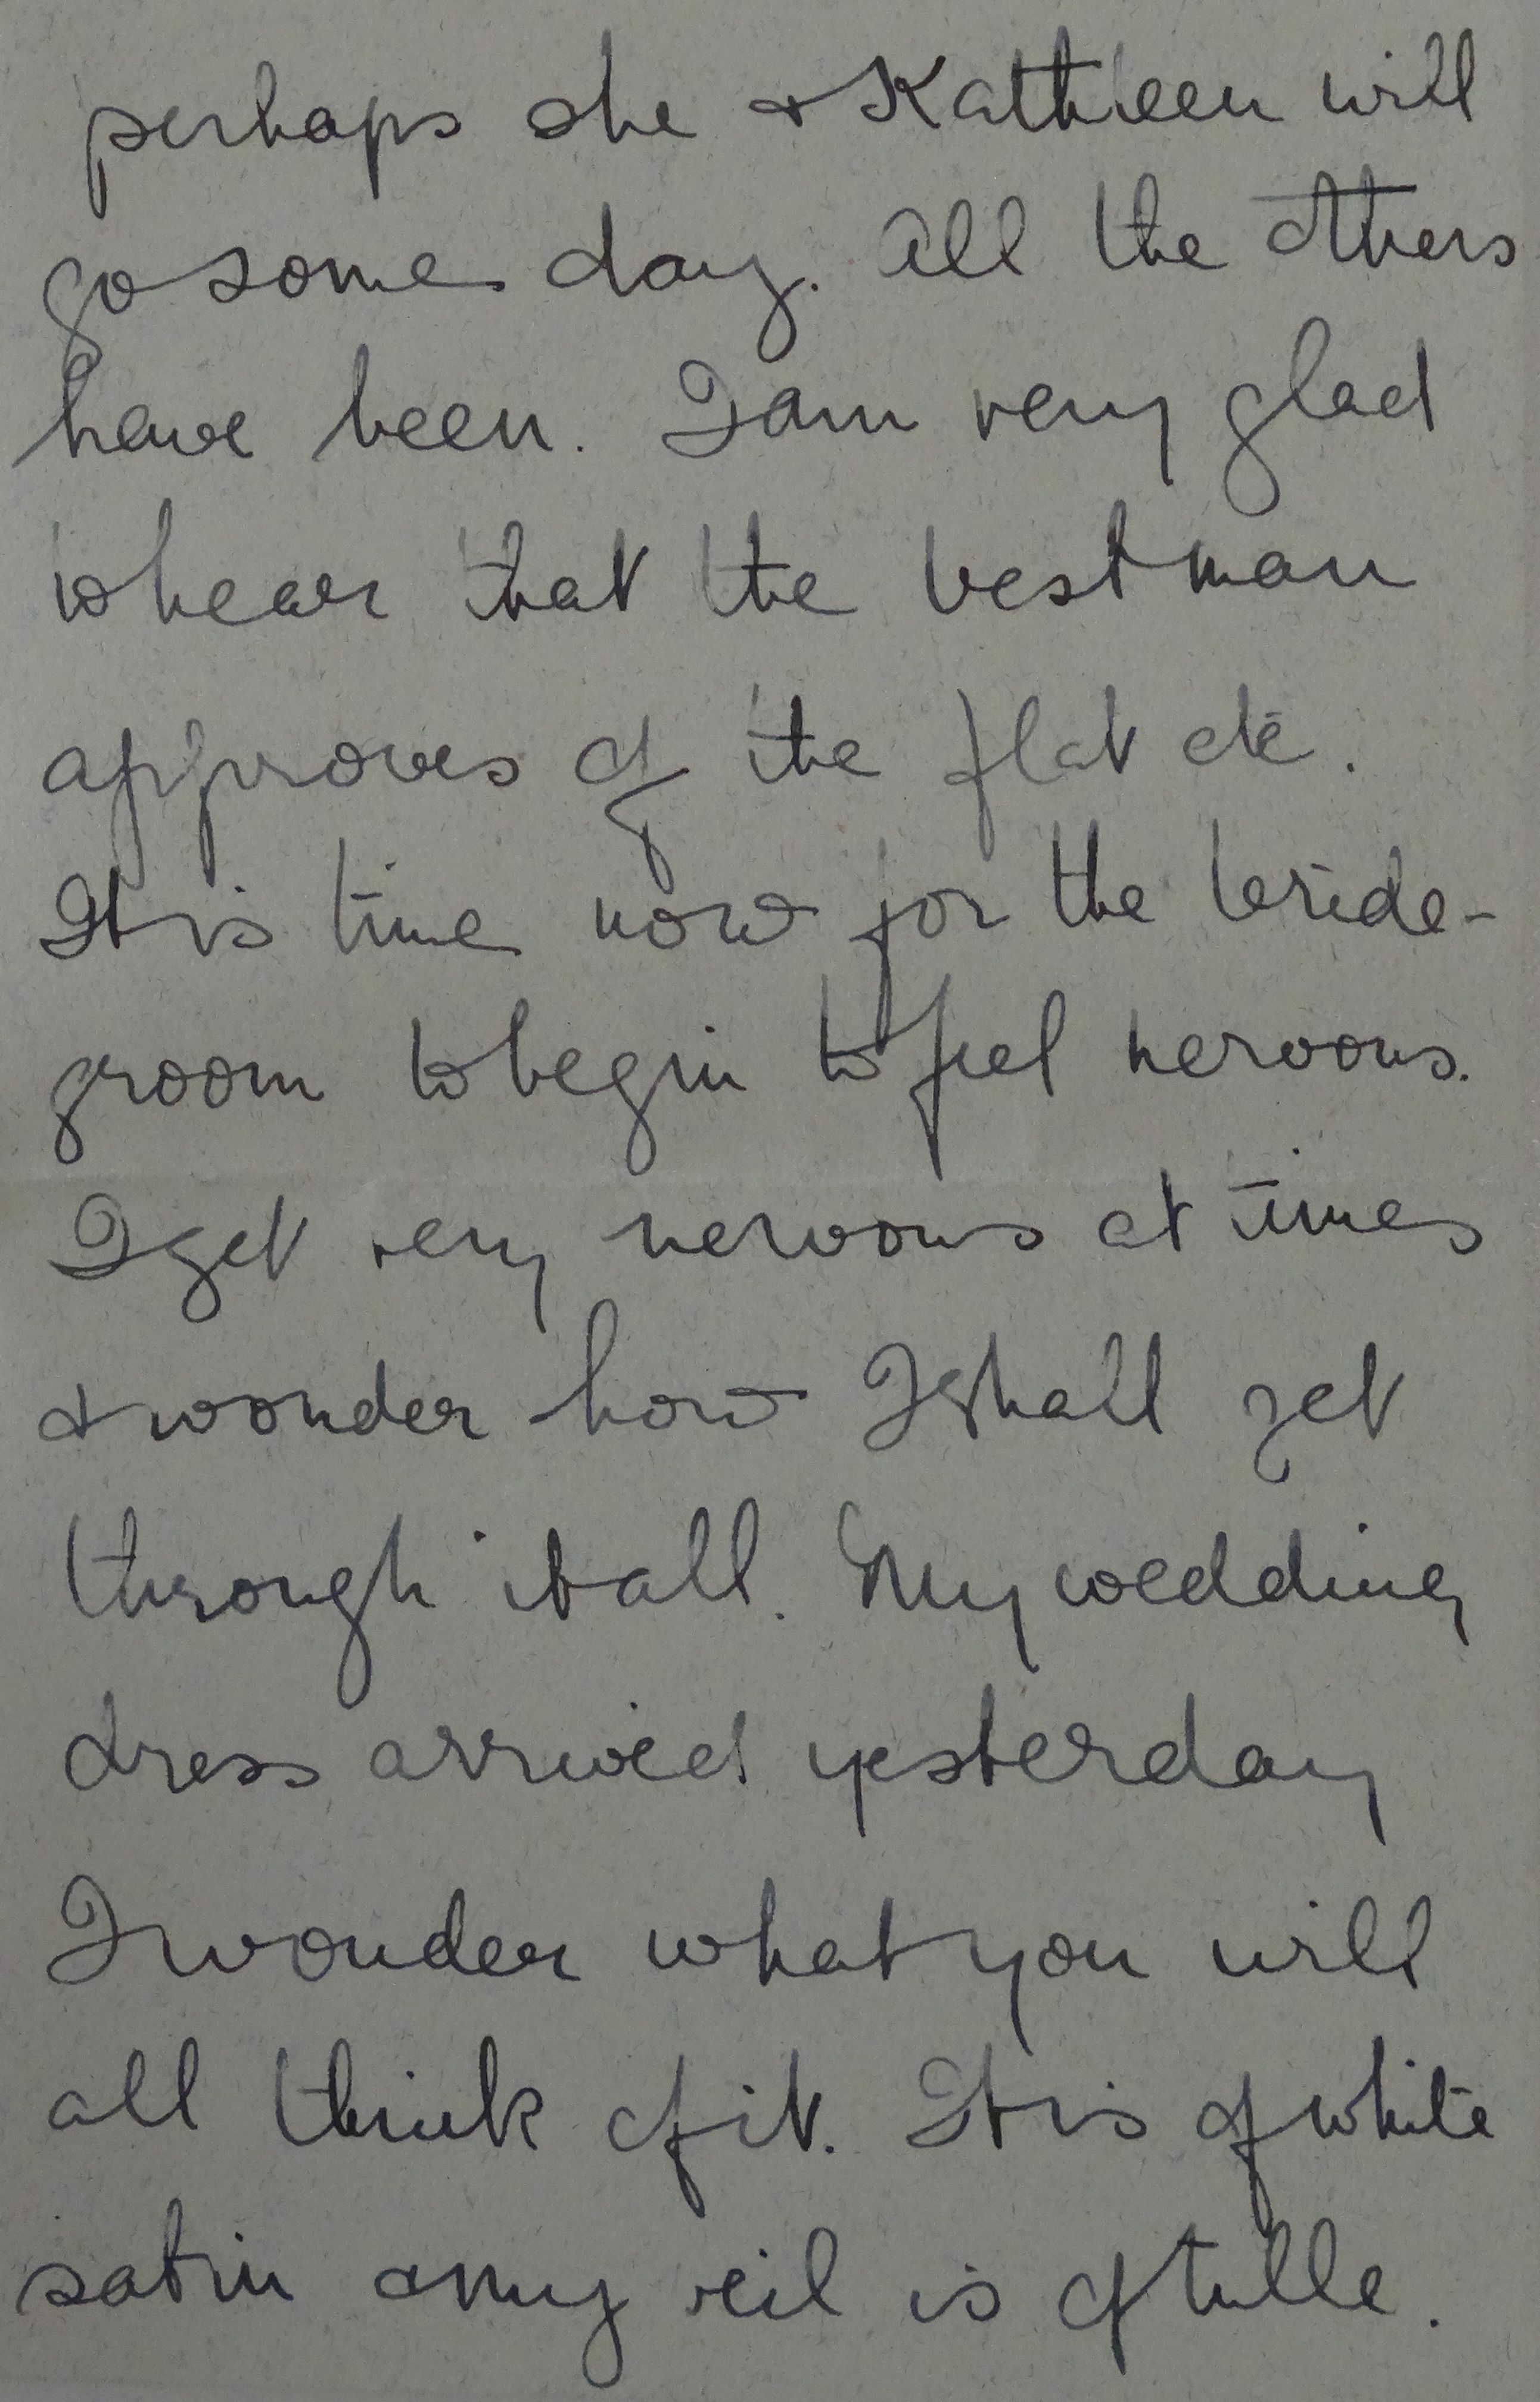 perhaps she & Kathleen will
go some day. All the others
have been. I am very glad
to hear that the best man
approves of the flat etc.
It is time now for the bride-
groom to begin to feel nervous.
I get very nervous at times
& wonder how I shall get
through it all. My wedding
dress arrived yesterday
I wonder what you will
all think of it. It is of white
satin & my veil is of tulle.